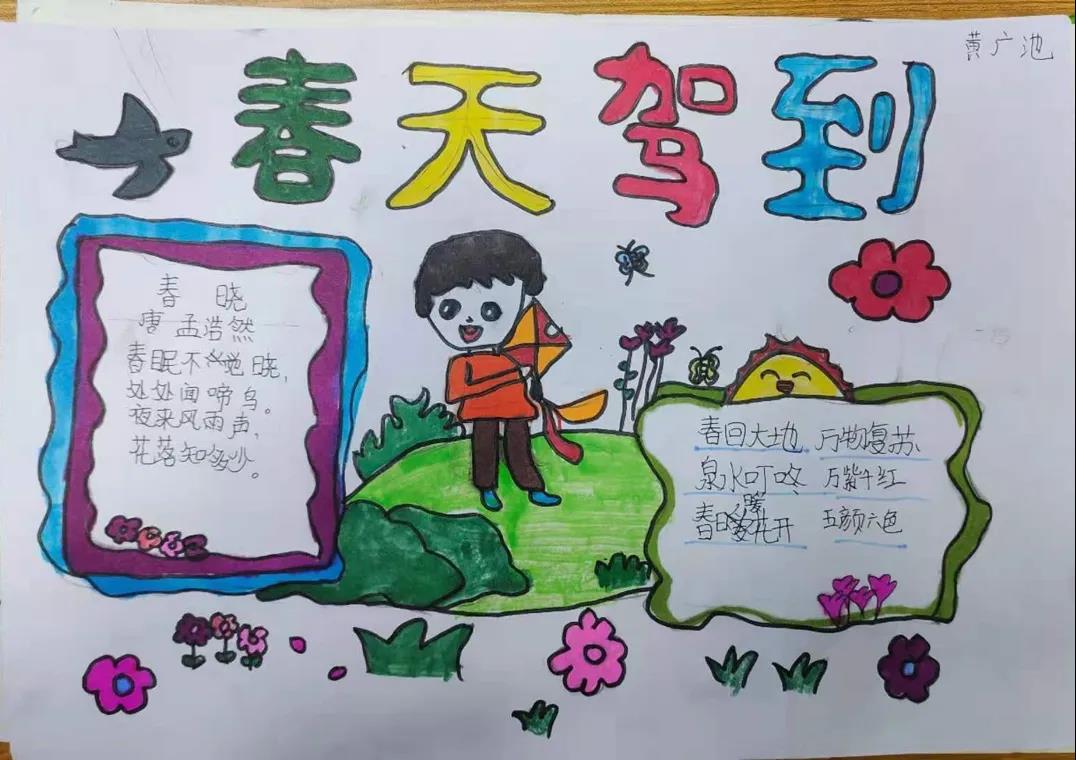 黄广池
春天驾到
春 晓
唐 孟浩然
春眠不觉晓，
处处闻啼鸟。
夜来风雨声，
花落知多少。
春回大地 万物复苏
泉水叮咚 万紫千红
春日暖花开 五颜六色